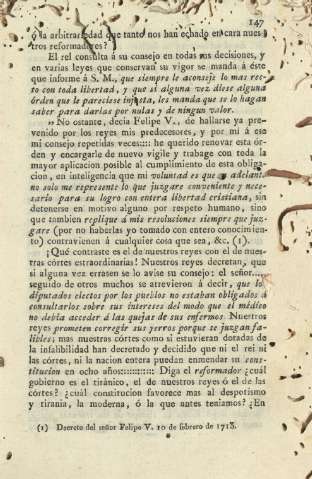 147
ó la arbitrariedad que tanto nos han echado en cara nues-
tros reformadores?
El rey consulta á su consejo en todas sus decisiones, y
en varias leyes que conservan su vigor se manda á éste
que informe á S. M., que siempre le aconseje lo mas rec-
to con toda libertad, y que si alguna vez diese alguna
órden que le pareciese injusta, les manda que se lo hagan
saber para darlas por nulas y de ningun valor.
„ No ostante, decia Felipe V., de hallarse ya pre-
venido por los reyes mis predecesores, y por mi á ese
mi consejo repetidas veces:::: he querido renovar esta ór-
den y encargarle de nuevo vigile y trabage con toda la
mayor aplicacion posible al cumplimiento de esta obliga-
cion, en inteligencia que mi voluntad es que en adelante
no solo me represente lo que juzgare conveniente y nece-
sario para su logro con entera libertad cristiana, sin
detenerse en motivo alguno por respeto humano, sino
que tambien replique á mis resoluciones siempre que juz-
gare (por no haberlas yo tomado con entero conocimien-
to) contravienen á cualquier cosa que sea, &c. (1).
¡Qué contraste es el de nuestros reyes con el de nues-
tras córtes estraordinarias! Nuestros reyes decretan, que
si alguna vez errasen se lo avise su consejo: el señor....
seguido de otros muchos se atrevieron á decir, que los
diputados electos por los pueblos no estaban obligados á
consultarlos sobre sus intereses del modo que el médico
no debia acceder á las quejas de sus enfermos. Nuestros
reyes prometen corregir sus yerros porque se juzgan fa-
libles; mas nuestras córtes como si estuvieran doradas de
la infalibilidad han decretado y decidido que ni el rei ni
las córtes, ni la nacion entera puedan enmendar su cons-
titucion en ocho años:::::::::: Diga el reformador ¿cuál
gobierno es el tiránico, el de nuestros reyes ó el de las
córtes? ¿cuál constitucion favorece mas al despotismo
y tirania, la moderna, ó la que antes teniamos? ¿En
(1) Decreto del señor Felipe V. 10 de febrero de 1715.